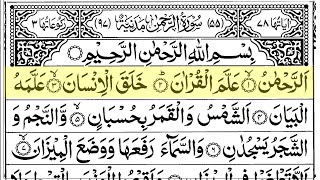 اٰیَاتُهَا ۷۸ (۵۵) سُوْرَةُ الرَّحْمٰنِ مَدَنِيَّةٌ (۹۷) رُكُوْعَاتُهَا ۳
بِسْمِ اللّٰهِ الرَّحْمٰنِ الرَّحِيْمِ
اَلرَّحْمٰنُ ۙ﴿۱﴾ عَلَّمَ الْقُرْاٰنَ ؕ﴿۲﴾ خَلَقَ الْاِنْسَانَ ۙ﴿۳﴾ عَلَّمَهُ
الْبَيَانَ ﴿۴﴾ اَلشَّمْسُ وَالْقَمَرُ بِحُسْبَانٍ ﴿۵﴾ وَّالنَّجْمُ وَ
الشَّجَرُ يَسْجُدٰنِ ﴿۶﴾ وَالسَّمَآءَ رَفَعَهَا وَوَضَعَ الْمِيْزَانَ ﴿۷﴾